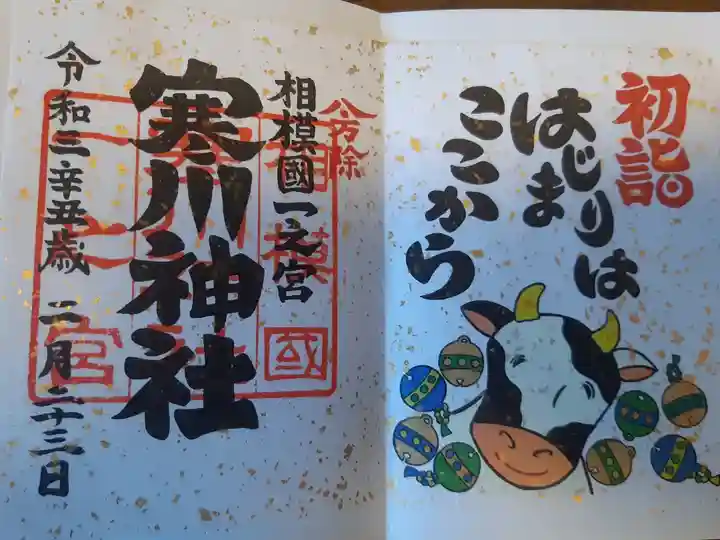 初詣
はじまりは
ここから
八方除
相模國一之宮
寒川神社
令和三辛丑歳 二月二十三日